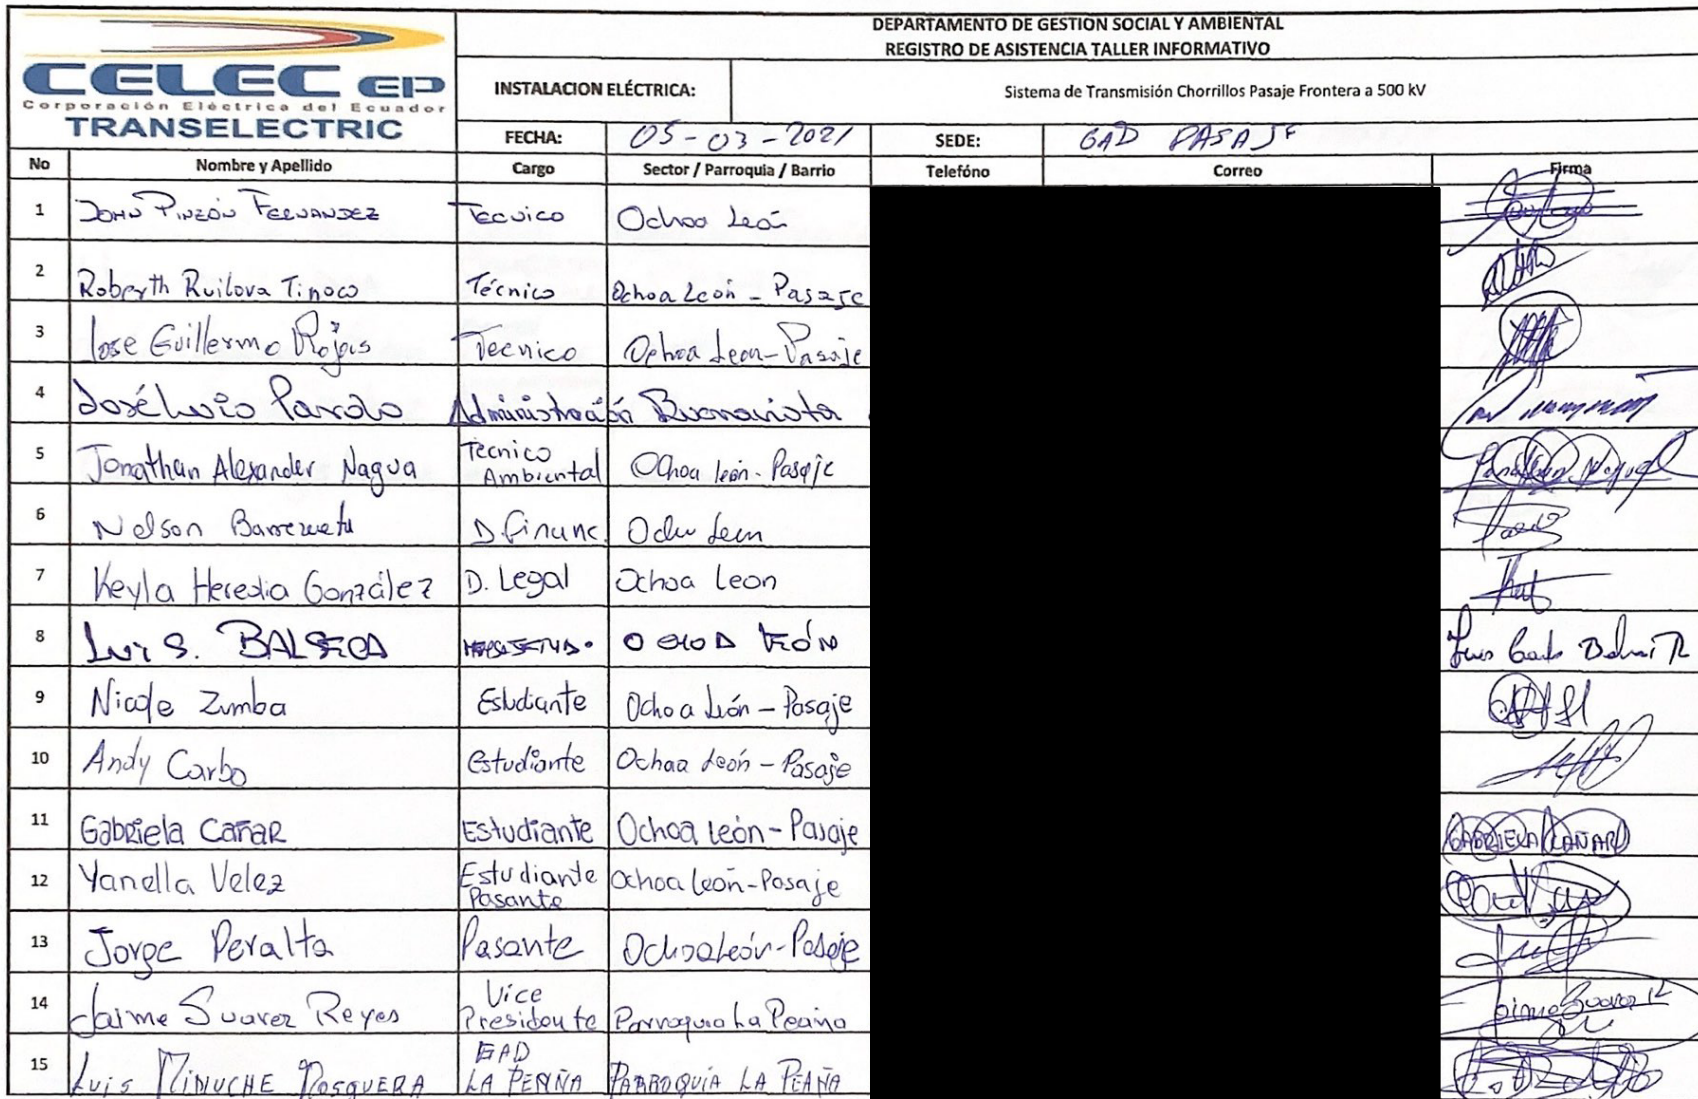 DEPARTAMENTO DE GESTION SOCIAL Y AMBIENTAL
REGISTRO DE ASISTENCIA TALLER INFORMATIVO
CELEC EP
Corporación Eléctrica del Ecuador
TRANSELECTRIC
INSTALACION ELÉCTRICA: Sistema de Transmisión Chorrillos Pasaje Frontera a 500 kV
FECHA: 05-03-2021 SEDE: GAD PASAJE
No Nombre y Apellido Cargo Sector / Parroquia / Barrio Telefóno Correo Firma
1 JOHN PINZÓN FERNANDEZ Tecnico Ochoa León
2 Roberth Ruilova Tinoco Técnico Ochoa León - Pasaje
3 Jose Guillermo Rojas Tecnico Ochoa Leon - Pasaje
4 José Luis Administración Buenavista
5 Jonathan Alexander Nagua Tecnico Ambiental Ochoa león - Pasaje Jonathan Nagua
6 Nelson Barrezueta D. Financ. Ochoa Leon
7 Keyla Heredia González D. Legal Ochoa Leon
8 LUIS S. BALSECA OCHOA LEÓN Luis
9 Nicole Zumba Estudiante Ochoa León - Pasaje
10 Andy Carbo Estudiante Ochoa León - Pasaje
11 Gabriela Cañar Estudiante Ochoa león - Pasaje GABRIELA CAÑAR
12 Yanella Velez Estudiante Pasante Ochoa león - Pasaje
13 Jorge Peralta Pasante Ochoa León - Pasaje
14 Jaime Suarez Reyes Vice Presidente Parroquia La Peaña Jaime Suarez R
15 Luis MINUCHE MOSQUERA GAD LA PEAÑA PARROQUIA LA PEAÑA